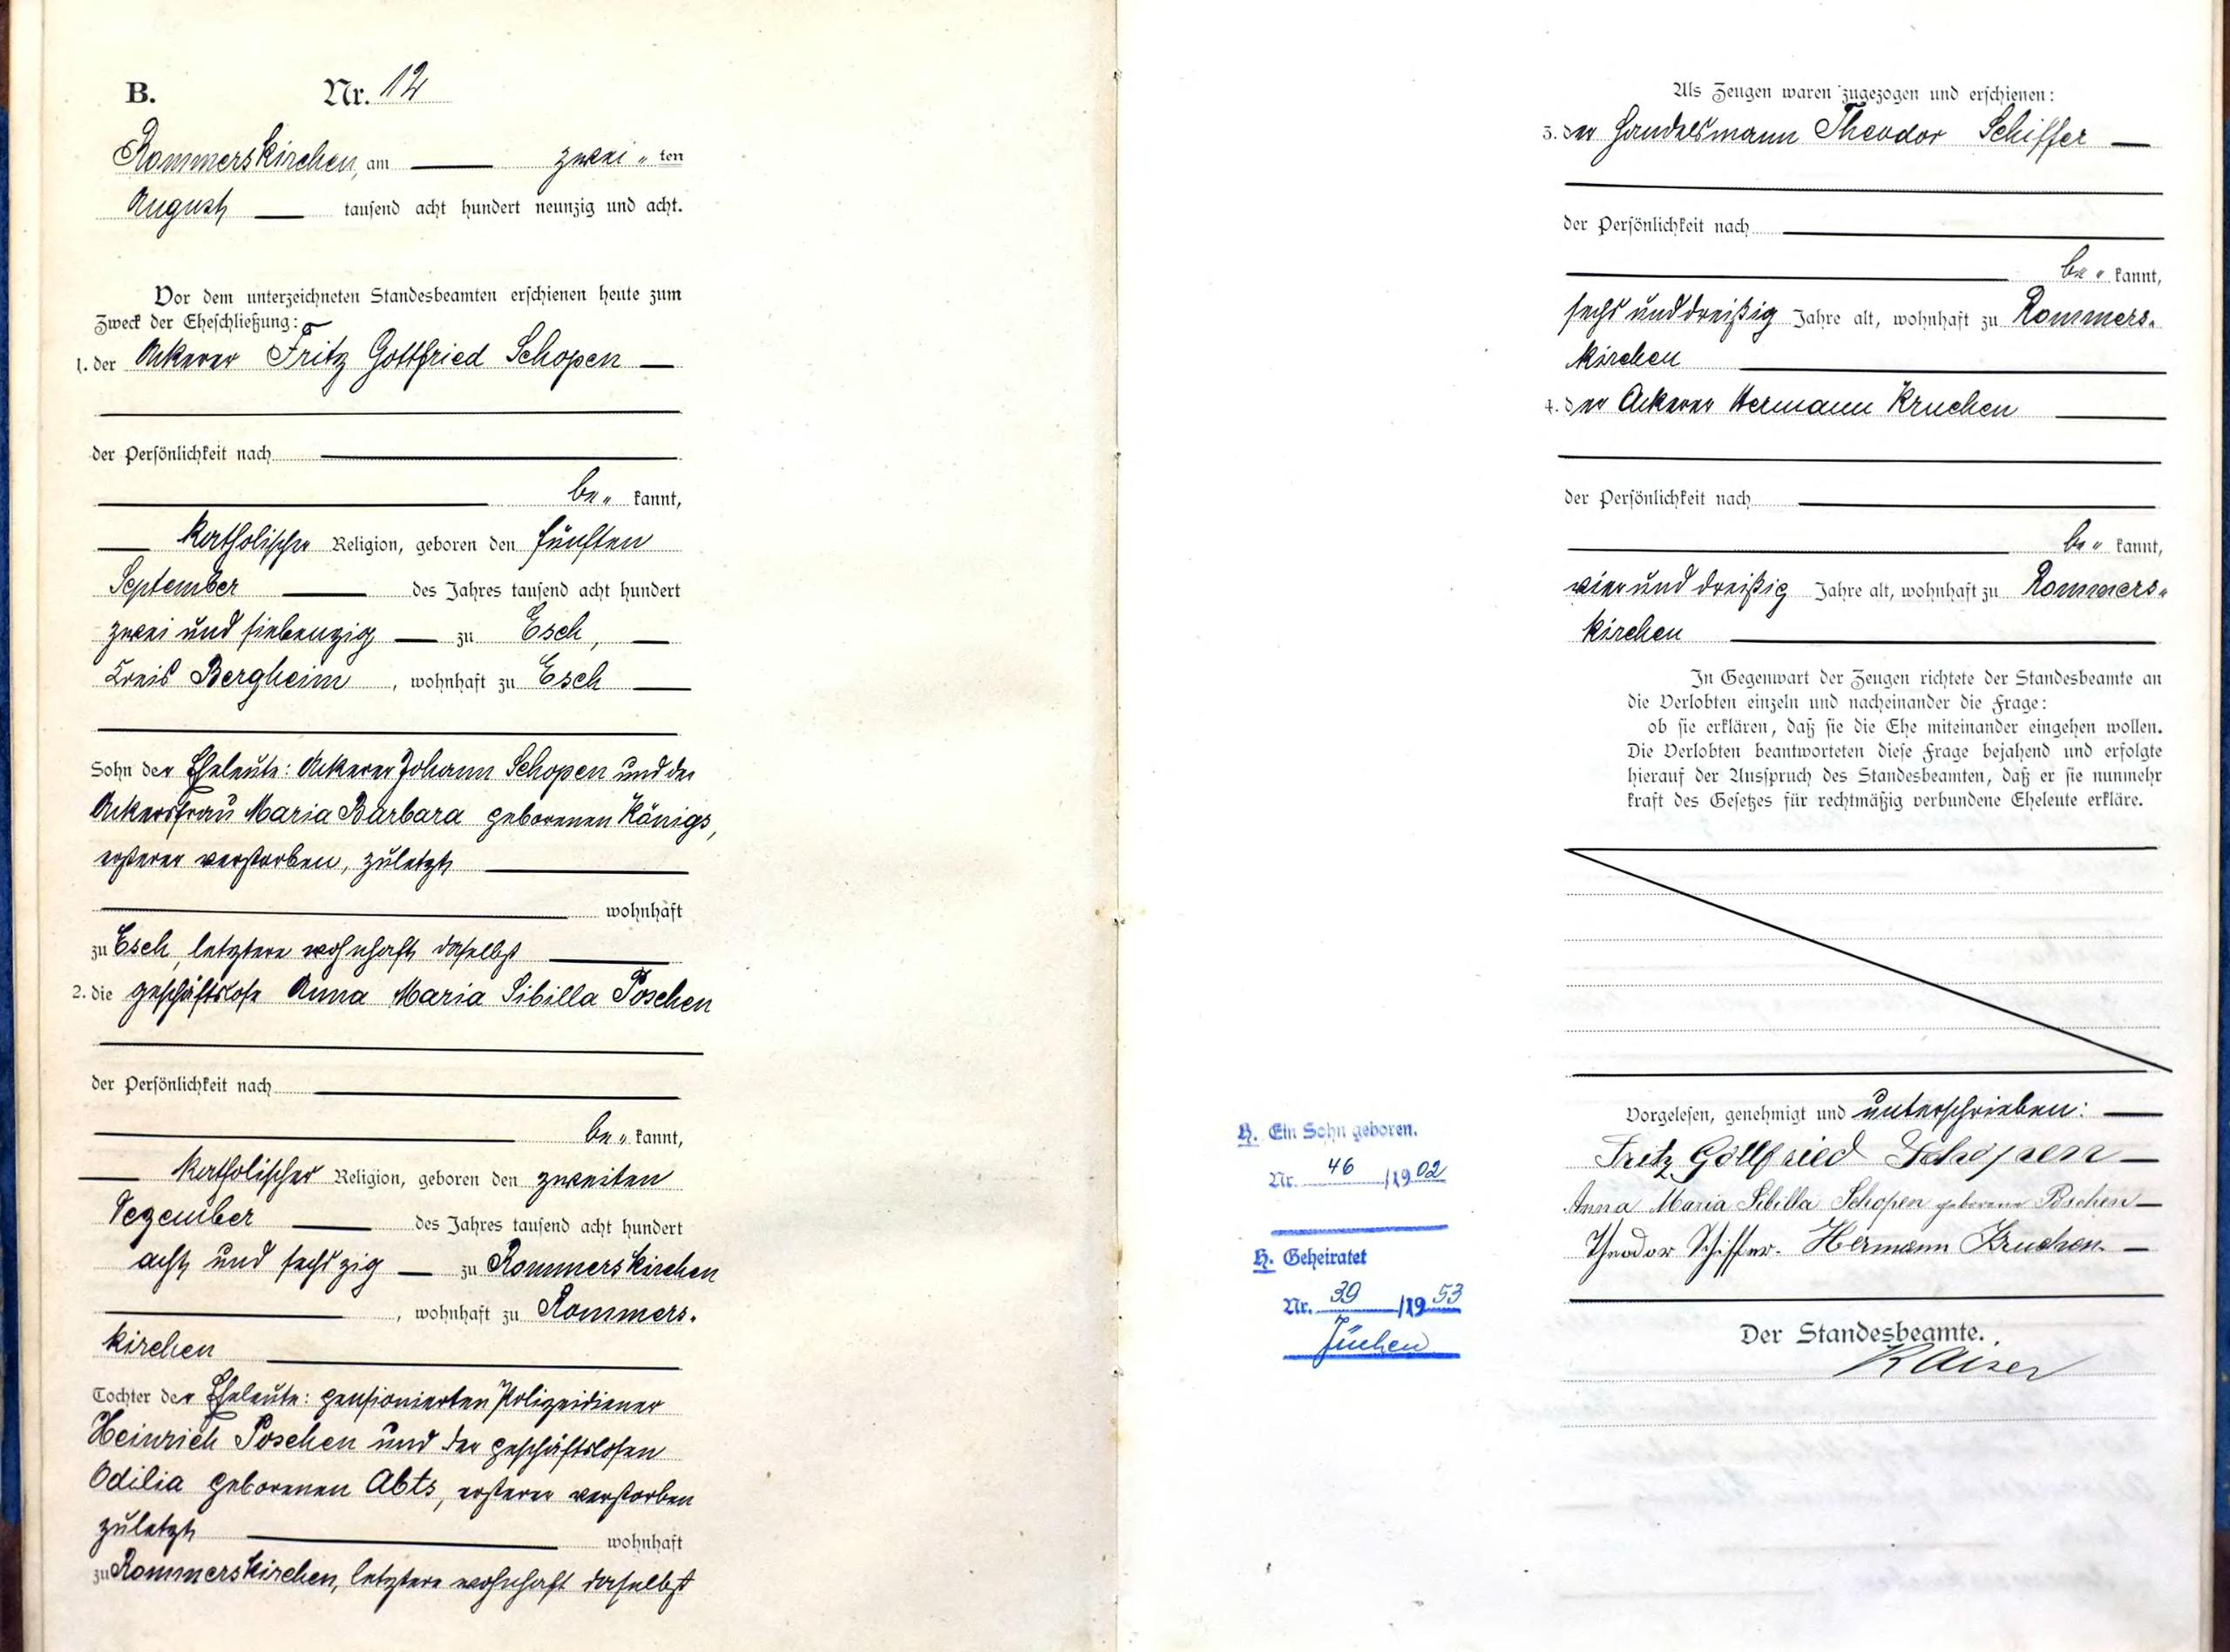 B. Nr. 12
Rommerskirchen, am zwei„ten
August tausend acht hundert neunzig und acht.
Vor dem unterzeichneten Standesbeamten erschienen heute zum
Zweck der Eheschließung:
1. der Ackerer Fritz Gottfried Schopen
der Persönlichkeit nach
be„kannt,
katholischer Religion, geboren den fünften
September des Jahres tausend acht hundert
zwei und siebenzig zu Esch,
Kreis Bergheim, wohnhaft zu Esch
Sohn der Eheleute: Ackerer Johann Schopen und der
Ackersfrau Maria Barbara geborenen Königs,
ersterer verstorben, zuletzt
wohnhaft
zu Esch, letztere wohnhaft daselbst
2. die geschäftslose Anna Maria Sibilla Poschen
der Persönlichkeit nach
be„kannt,
katholischer Religion, geboren den zweiten
Dezember des Jahres tausend acht hundert
acht und sechszig zu Rommerskirchen
, wohnhaft zu Rommers-
kirchen
Tochter der Eheleute: pensionierten Polizeidiener
Heinrich Poschen und der geschäftslosen
Odilia geborenen Abts, ersterer verstorben
zuletzt wohnhaft
zu Rommerskirchen, letztere wohnhaft daselbst
Als Zeugen waren zugezogen und erschienen:
3. der Handelsmann Theodor Schiffer
der Persönlichkeit nach
be„kannt,
sechs und dreißig Jahre alt, wohnhaft zu Rommers-
kirchen
4. der Ackerer Hermann Kruchen
der Persönlichkeit nach
be„kannt,
vier und dreißig Jahre alt, wohnhaft zu Rommers„
kirchen
In Gegenwart der Zeugen richtete der Standesbeamte an
die Verlobten einzeln und nacheinander die Frage:
ob sie erklären, daß sie die Ehe miteinander eingehen wollen.
Die Verlobten beantworteten diese Frage bejahend und erfolgte
hierauf der Ausspruch des Standesbeamten, daß er sie nunmehr
kraft des Gesetzes für rechtmäßig verbundene Eheleute erkläre.
Vorgelesen, genehmigt und unterschrieben:
Fritz Gottfried Schopen
Anna Maria Sibilla Schopen geborene Poschen
Theodor Schiffer. Hermann Kruchen.
Der Standesbeamte.
Kaiser
H. Ein Sohn geboren.
Nr. 46 /1902
H. Geheiratet
Nr. 39 /1953
Jüchen